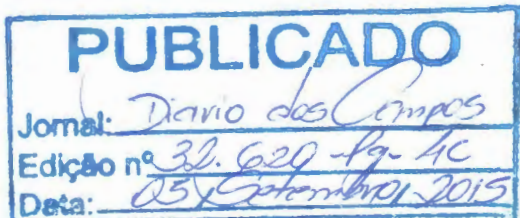 PUBLICADO
Jornal: Diario dos Campos
Edição nº 32.620 - Pg- 4C
Data: 05 / Setembro / 2015